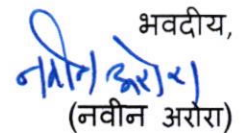 भवदीय,
नवीन अरोरा
(नवीन अरोरा)